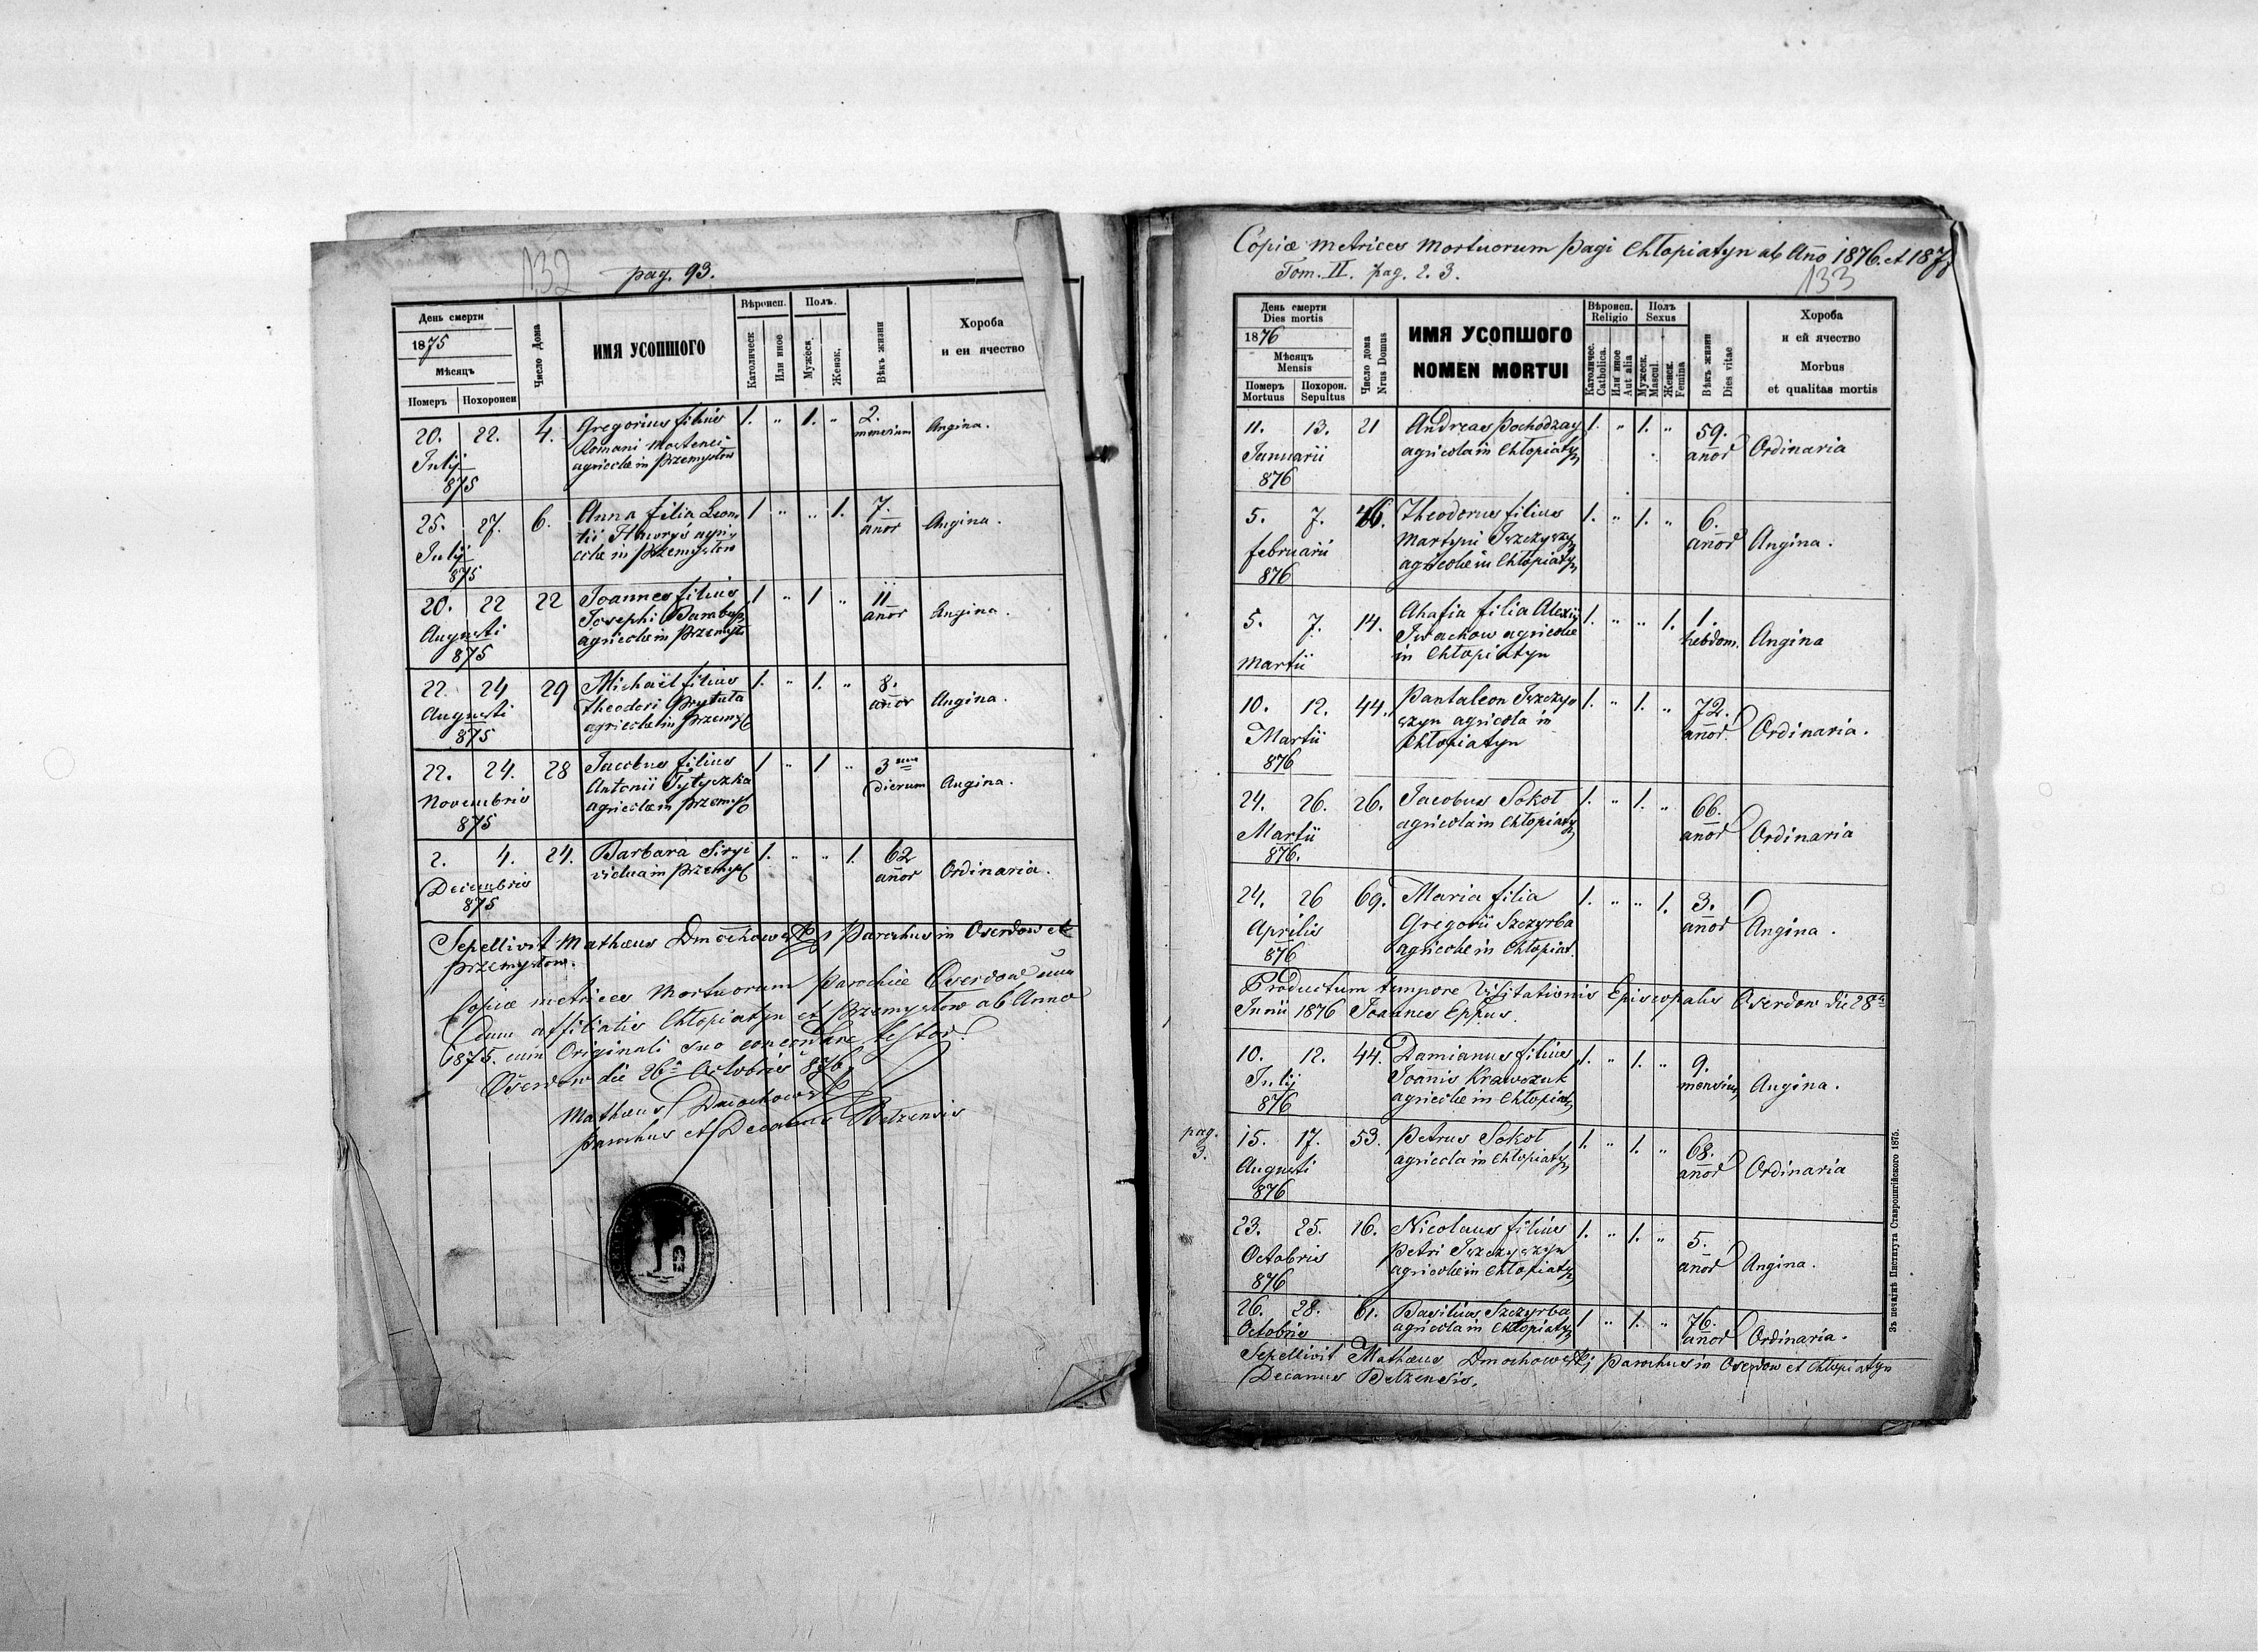 132 pag. 93.
День смерти
1875
Мѣсяцъ
Померъ Похоронен
Число Дома
ИМЯ УСОПШОГО
Вѣроисп.
Католическ
Или иное
Полъ.
Мужеск
Женск.
Вѣкъ жизни
Хороба
и еи ячество
20. 22. 4. Gregorius filius 1. " 1. " 2. Angina.
Julij Romani mensium
875 agricolæ in Przemysłow
25. 27. 6. Anna filia Leon- 1 " " 1. 7. Angina.
Julij tii agri- anor
875 colæ in Przemysłow
20. 22 22 Joannes filius 1 " 1 " 11 Angina.
Augusti Josephi anor
875 agricolæ in Przemysł
22. 24 29 Michaël filius 1. " 1. " 8. Angina.
Augusti Theodori Prytuła anor
875 agricolæ in Przemys
22. 24. 28 Jacobus filius 1 " 1 " 3 Angina.
Novembris Antonii Tytyszka dierum
875 agricolæ in Przemys
2. 4. 24. Barbara Siryi 1. " " 1. 62 Ordinaria.
Decembris vidua in Przemys anor
875
Sepellivit Mathæus Dmochowski Parochus in Oserdow et
Przemysłow.
Copiæ metrices Mortuorum Parochiæ Oserdow una
cum affiliatis Chłopiatyn et Przemysłow ab Anno
1875. cum Originali suo concordare testor.
Oserdow die 26 Octobris 876
Mathæus Dmochowski
Parochus et Decanus Bełzensis
Copiæ metrices Mortuorum Pagi Chłopiatyn ab Año 1876. et 187
Tom. II. pag. 2. 3.
133
День смерти
Dies mortis
1876
Мѣсяцъ
Mensis
Померъ Похорон.
Mortuus Sepultus
Число дома
Nrus Domus
ИМЯ УСОПШОГО
NOMEN MORTUI
Вѣроисп.
Religio
Католичес.
Catholica.
Или иное
Aut alia
Полъ
Sexus
Мужеск.
Mascul.
Женск.
Femina
Вѣкъ жизни
Dies vitae
Хороба
и ей ячество
Morbus
et qualitas mortis
11. 13. 21 Andreas Pochodzay 1. " 1. " 59. Ordinaria
Januarii agricola in Chłopiatyn anor
876
5. 7. 46. Theodorus filius 1. " 1. " 6. Angina.
februarii Martyni anor
876 agricolæ in Chłopiatyn
5. 7. 14. Ahafia filia Alexii 1. " " 1. 1. Angina
Martii Iwachow agricolæ hebdom.
in Chłopiatyn
10. 12. 44. Pantaleon 1. " 1. " 72. Ordinaria.
Martii agricola in anor
876 Chłopiatyn
24. 26. 26. Jacobus Sokoł 1. " 1. " 66. Ordinaria
Martii agricola in Chłopiatyn anor
876.
24. 26 69. Maria filia 1. " " 1. 3. Angina.
Aprilis Gregorii Szczyrba anor
876 agricolæ in Chłopiat.
Productum tempore Visitationis Episcopalis Oserdow die 28
Junii 1876 Joannes Eppus.
10. 12. 44. Damianus filius 1. " 1. " 9. Angina.
Julij Joannis Krawczuk mensium
876 agricolæ in Chłopiat
pag.
3.
15. 17. 53. Petrus Sokoł 1. " 1. " 68. Ordinaria
Augusti agricola in Chłopiatyn anor
876
23. 25. 16. Nicolaus filius 1. " 1. " 5. Angina.
Octobris Petri anor
876 agricolæ in Chłopiatyn
26. 28. 61. Basilius Szczyrba 1 " 1. " 76. Ordinaria.
Octobris agricola in Chłopiatyn anor
Sepellivit Mathæus Dmochowski Parochus in Oserdow et Chłopiatyn
Decanus Bełzensis.
Зъ печатнѣ Института Ставропигійского 1875.